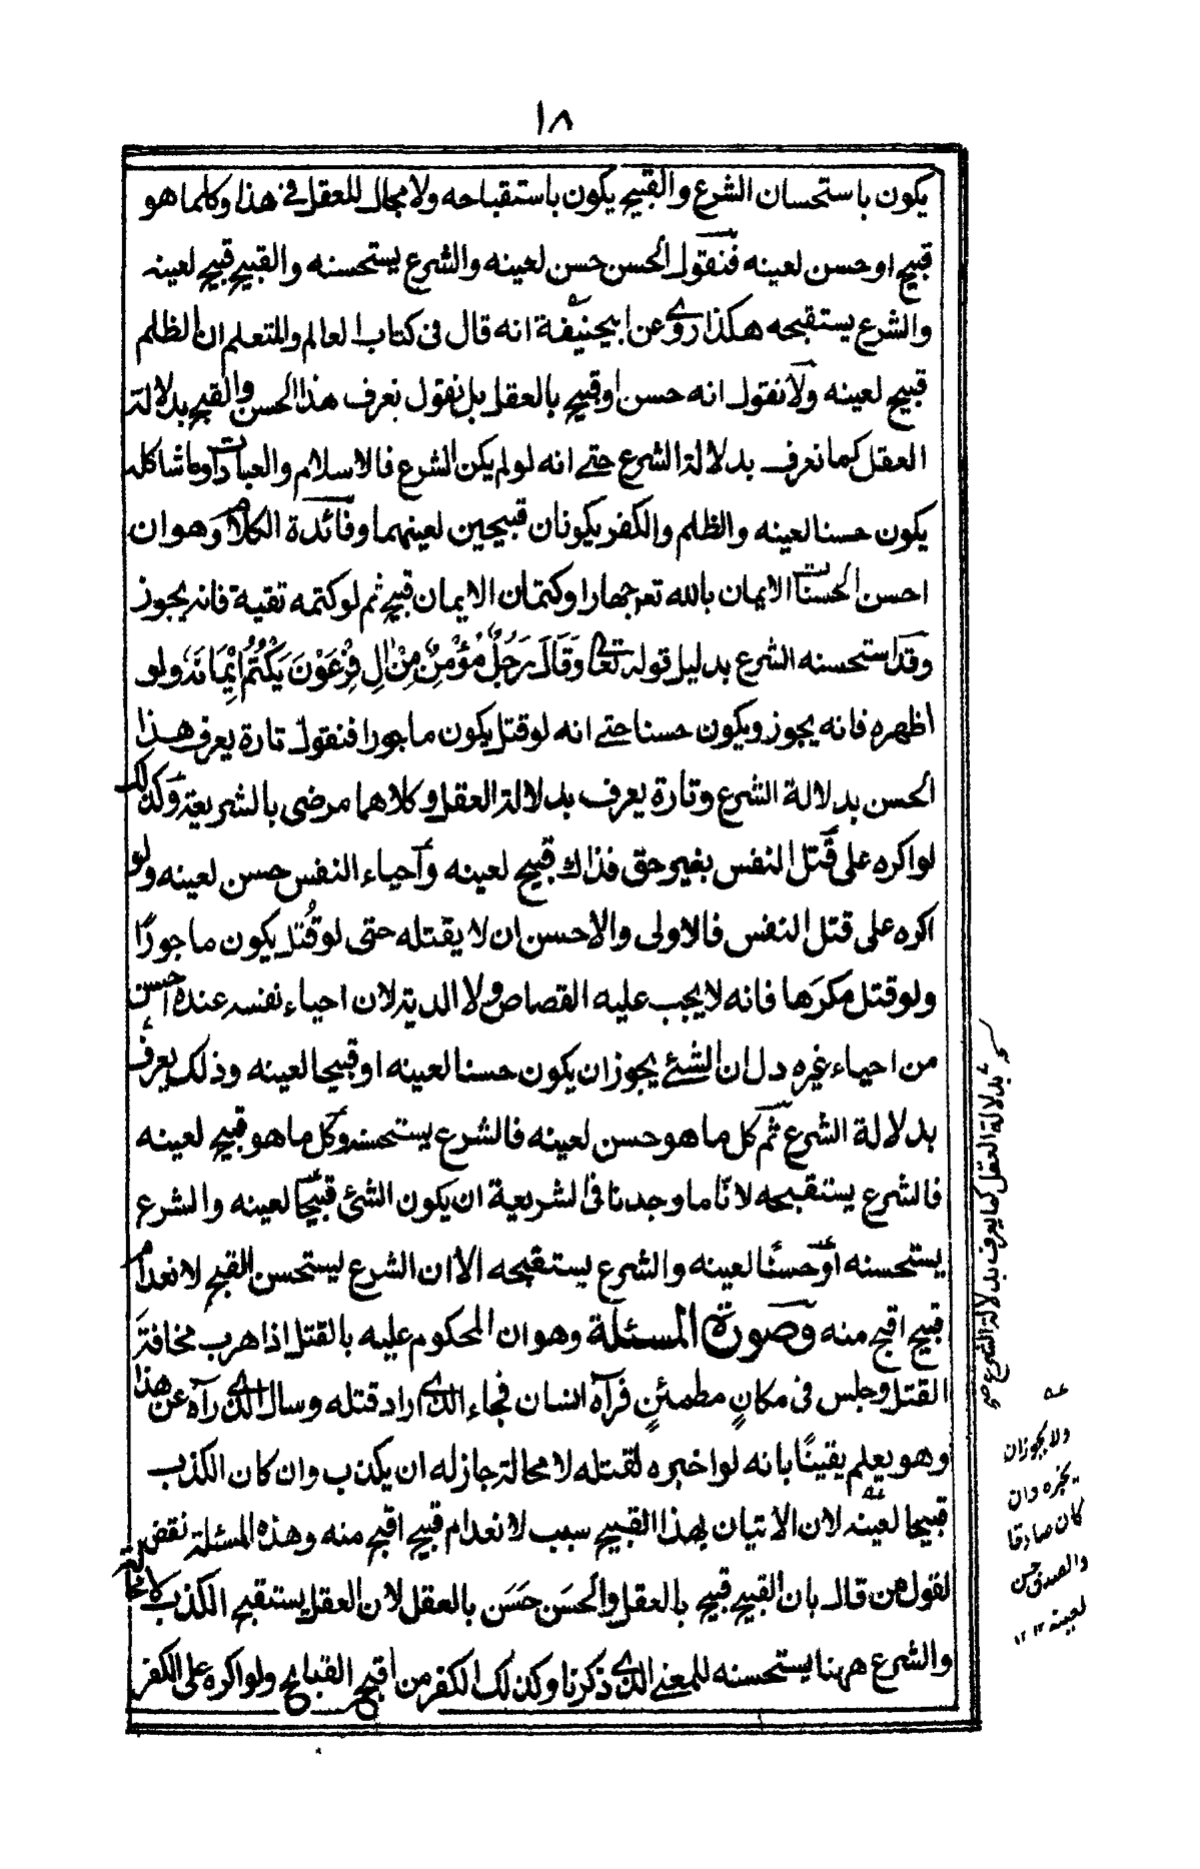 ١٨
يكون باستحسان الشرع والقبيح يكون باستقباحه ولا مجال للعقل فى هذا وكلما هو
قبيح او حسن لعينه فنقول الحسن حسن لعينه والشرع يستحسنه والقبيح قبيح لعينه
والشرع يستقبحه هكذا روى عن ابيحنيفة انه قال فى كتاب العالم والمتعلم ان الظلم
قبيح لعينه ولا نقول انه حسن او قبيح بالعقل بل نقول نعرف هذا الحسن والقبح بدلالة
العقل كما نعرف بدلالة الشرع حتى انه لو لم يكن الشرع فالاسلام والعبادات وما شاكله
يكون حسنا لعينه والظلم والكفر يكونان قبيحين لعينهما وفائدة الكلام وهو ان
احسن الحسنات الايمان بالله تعه جهارا وكتمان الايمان قبيح ثم لو كتمه تقية فانه يجوز
وقد استحسنه الشرع بدليل قوله تعالى وَقَالَ رَجُلٌ مُؤْمِنٌ مِنْ اٰلِ فِرْعَوْنَ يَكْتُمُ اِيْمَانَهُ ولو
اظهره فانه يجوز ويكون حسنا حتى انه لو قتل يكون ماجورا فنقول تارة يعرف هذا
الحسن بدلالة الشرع وتارة يعرف بدلالة العقل وكلاهما مرضى بالشريعة وكذلك
لو اكره على قتل النفس بغير حق فذاك قبيح لعينه وأحياء النفس حسن لعينه ولو
اكره على قتل النفس فالاولى والاحسن ان لا يقتله حتى لو قُتل يكون ماجورًا
ولو قتل مكرَها فانه لا يجب عليه القصاص ولا الدية لان احياء نفسه عنده احسن
من احياء غيره دل ان الشئ يجوز ان يكون حسنا لعينه او قبيحا لعينه وذلك يعرف
بدلالة الشرع ثم كل ما هو حسن لعينه فالشرع يستحسنه وكل ما هو قبيح لعينه
فالشرع يستقبحه لانّا ما وجدنا فى الشريعة ان يكون الشئ قبيحًا لعينه والشرع
يستحسنه أو حسنًا لعينه والشرع يستقبحه الا ان الشرع ليستحسن القبح لانعدام
قبيح اقبح منه وصورة المسئلة وهو ان المحكوم عليه بالقتل اذا هرب مخافةَ
القتل وجلس فى مكانٍ مطمئنٍ فرآه انسان فجاء الذى اراد قتله وسال الذى رآه عن هذا
وهو يعلم يقينًا بانه لو اخبره لقتله لا محالة جاز له ان يكذب وان كان الكذب
قبيحا لعينه لان الاتيان بهذا القبيح سبب لانعدام قبيح اقبح منه وهذه المسئلة نقض
لقول من قال بان القبيح قبيح بالعقل والحَسَن حَسَن بالعقل لان العقل يستقبح الكذب
والشرع ههنا يستحسنه للمعنى الذى ذكرنا وكذلك الكفر من اقبح القبايح ولو اكره على الكفر
بدلالة العقل كما يعرف بدلالة الشرع صح
ولا يجوز ان
يخبره وان
كان صادقا
والصدق حسن
لعينه ١٢